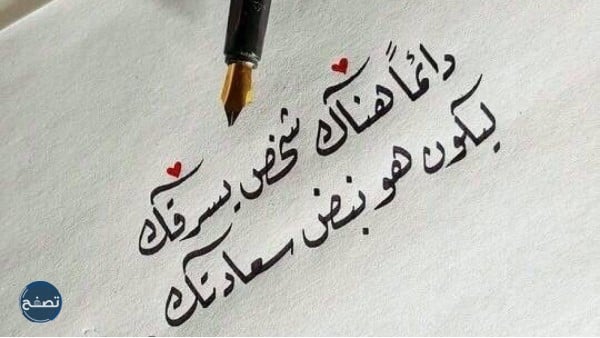 دائماً هناك شخص يسرقك
ليكون هو نبض سعادتك
تصفح